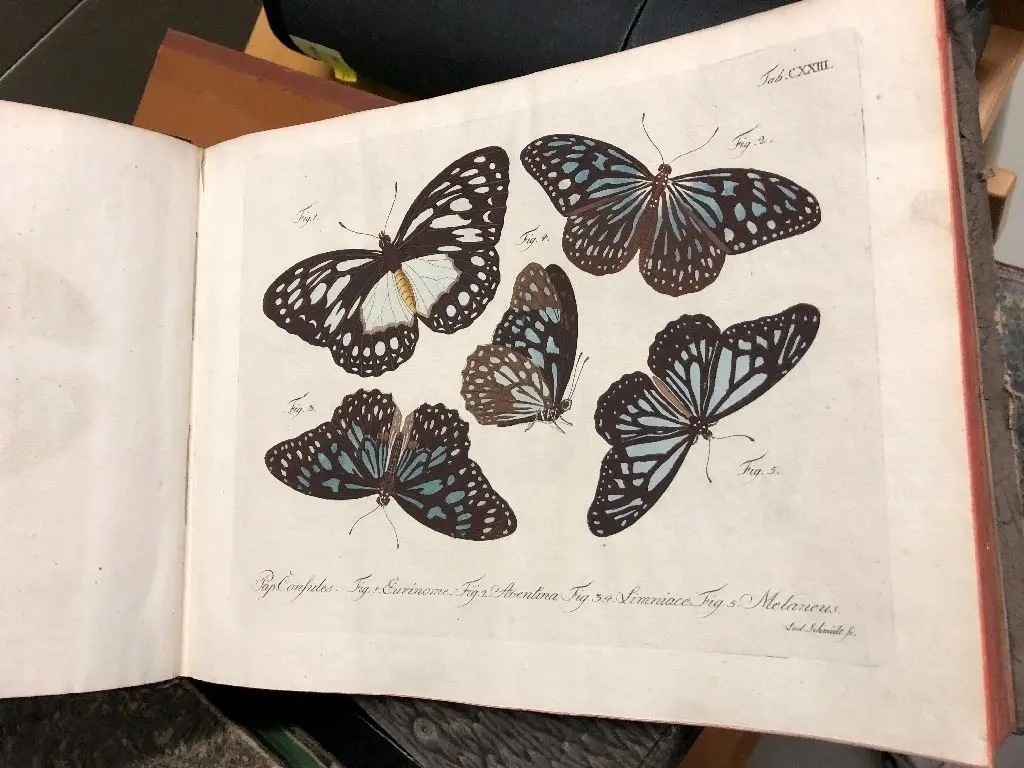 Tab. CXXIII.
Fig. 2.
Fig. 1.
Fig. 4.
Fig. 3.
Fig. 5.
Pap. Consules. Fig. 1. Eurinome. Fig. 2. Aventina Fig. 3.4. Limniace. Fig. 5. Melaneus.
Lud. Schmidt sc.